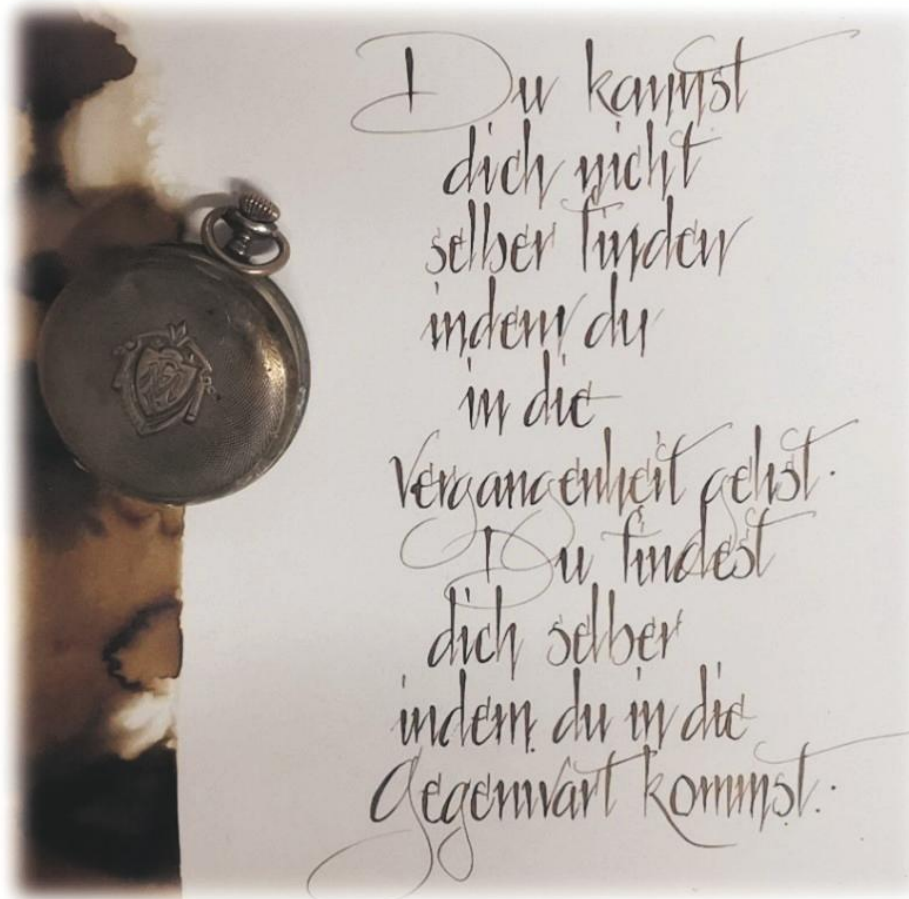 Du kannst
dich nicht
selber finden
indem du
in die
Vergangenheit gehst.
Du findest
dich selber
indem du in die
Gegenwart kommst.